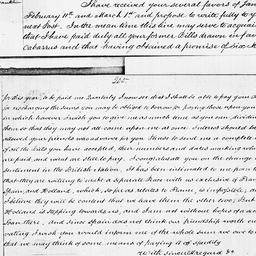 I have received your several favors of Jan
February 11th and March 1st and propose to write fully to y
next Post. In the mean time this line may serve to acquai
that I have paid duly all your former Bills drawn in fav
Cabarrus and that having obtained a promise of six M
225
for this year, to be paid me Quarterly I now see that I shall be able to pay your d
for reimbursing the sums you may be obliged to borrow for paying those upon you
in which however I wish you to give me as much time as you can, dividin
them so that they may not all come upon me at once. Interest should be
allowed your friends who advance for you. Please to send me a complete
of all the Bills you have accepted, their numbers and dates marking wh
are paid, and what are still to pay. I congratulate you on the change o
sentiment in the British nation. It has been intimated to me from
that they are willing to make a Separate Peace with us exclusive of Fran
Spain, and Holland, which, so far as relates to France, is impossible, an
I believe they will be content that we leave them the other two; But
Holland is stepping towards us, and I am not without hopes of a sec
loan there, and since Spain does not think our Friendship worth cu
vating, I wish you would inform me of the whole sum we owe to
that we may think of some means of paying it off speedily
With sincere Regard &c